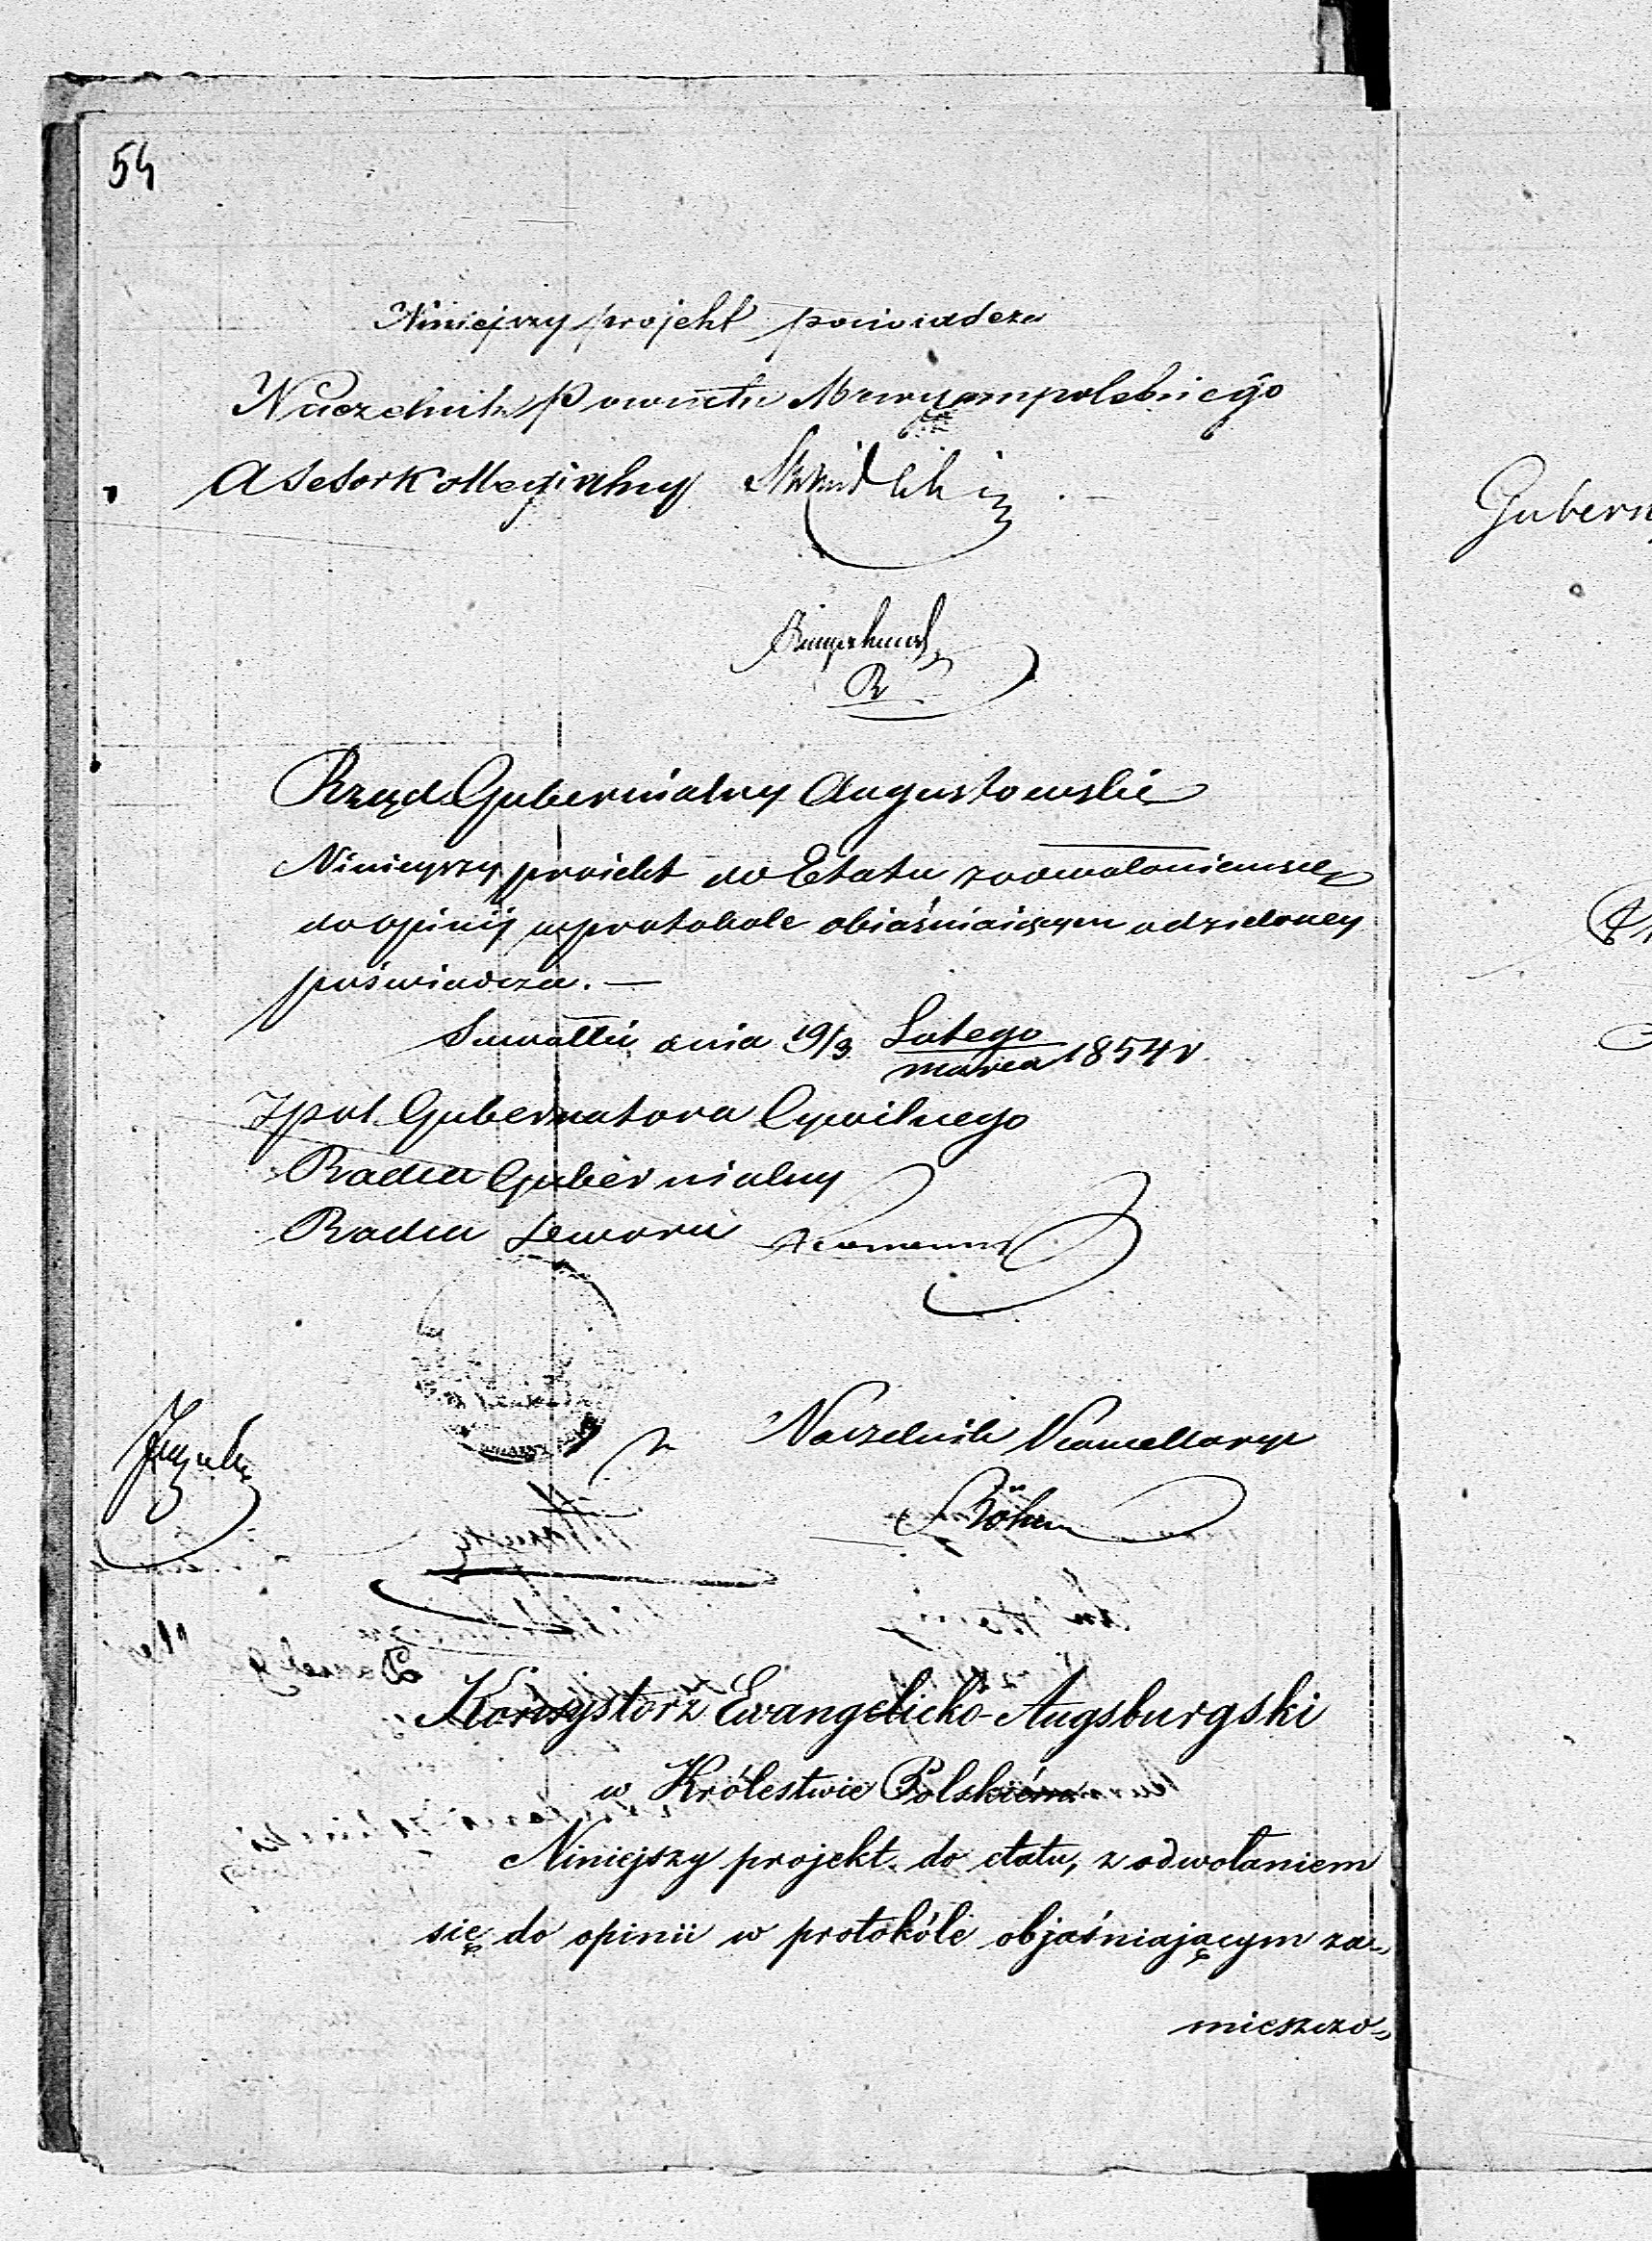 54
Niniejszy projekt poświadcza
Naczelnik Powiatu Maryampolskiego
Asesor Kollegialny
R
Rząd Gubernialny Augustowski
Ninieyszy proiekt do Etatu z odwołaniem się
do opinij w protokole obiaśniaiącym udzieloney
poświadcza. —
Suwałki dnia 19/3 Lutego
Marca 1854 r.
Gubernatora Cywilnego
Radca Gubernialny
Radca
Naczelnik Kancellaryi
Böhm
Konsystorz Ewangelicko-Augsburgski
w Królestwie Polskiém
Niniejszy projekt do etatu, z odwołaniem
się do opinii w protokóle objaśniającym za-
mieszczo-